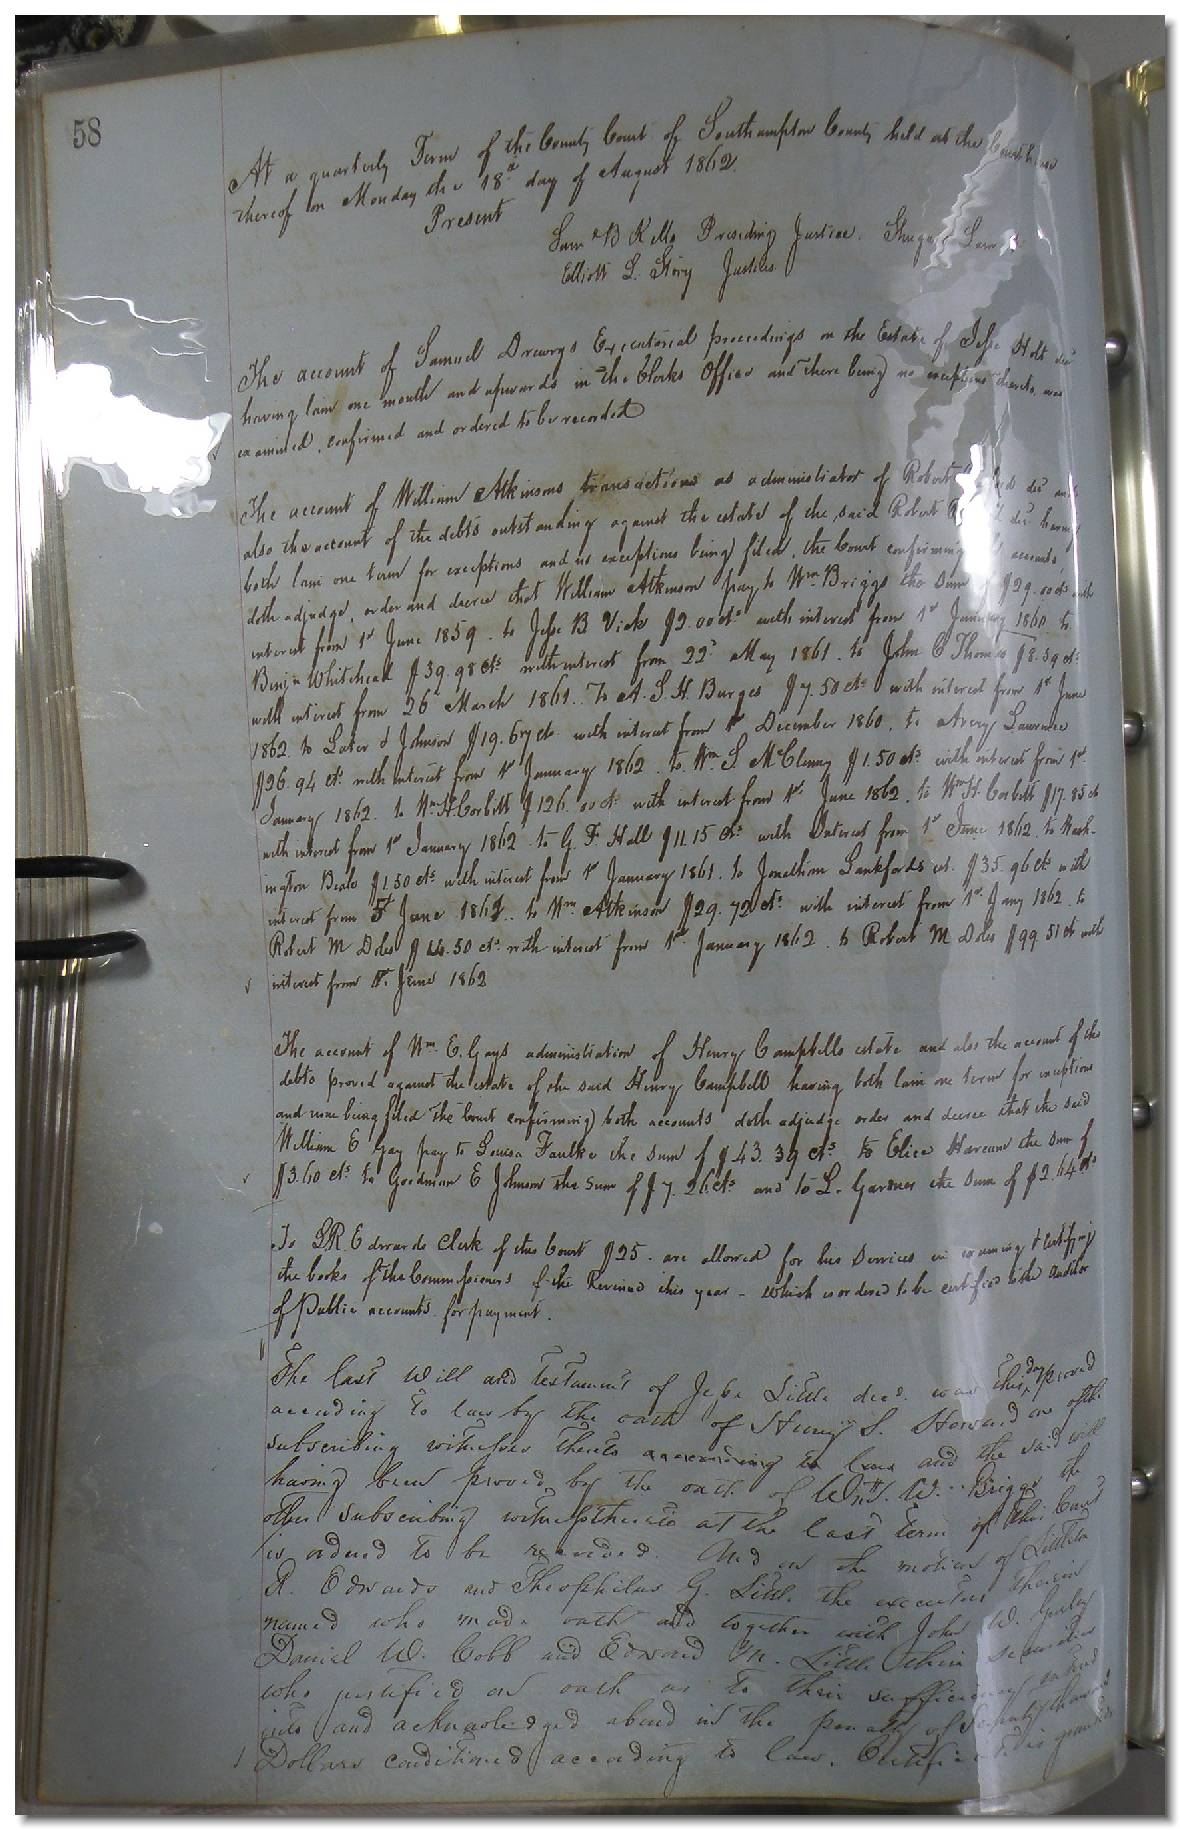 58
At a quarterly Term of the County Court of Southampton County held at the Courthouse
thereof on Monday the 18th day of August 1862.
Present
Sam B Kello Presiding Justice.
Elliott L. Story Justices
The account of Samuel Drewrys Executorial proceedings on the Estate of Jesse Holt decd
having lain one month and upwards in the Clerks Office and there being no exceptions thereto, was
examined, confirmed and ordered to be recorded
The account of William Atkinsons transactions as administrator of Robert decd and
also the account of the debts outstanding against the estate of the said Robert decd having
both lain one term for exceptions and no exceptions being filed, the Court confirming accounts
doth adjudge, order and decree that William Atkinson pay to Wm Briggs the sum of $29.00cts with
interest from 1st June 1859. to Jesse B Vick $2.00cts with interest from 1st January 1860. to
Benjn Whitehead $39.98cts with interest from 22d May 1861. to John C Thomas $8.59cts
with interest from 26 March 1861. To A. S. H. Burges $7.50cts with interest from 1st June
1862. to & Johnson $19.67cts with interest from 1st December 1860. to Avery Lawrence
$26.94 cts with interest from 1st January 1862. to Wm S. McClenny $1.50cts with interest from 1st
January 1862. to Wm H Corbitt $126.00cts with interest from 1st June 1862. to Wm H. Corbitt $17.85cts
with interest from 1st January 1862. to G. F. Hall $11.15 cts with Interest from 1st June 1862. to Wash-
ington Beale $1.50cts with interest from 1st January 1861. to Jonathan Lankfords est. $35.96cts with
interest from 5t June 1862. to Wm Atkinson $29.72cts with interest from 1st Jany 1862. to
Robert M Doles $ .50 cts with interest from 1st January 1862. to Robert M Doles $99.51cts with
interest from 1st June 1862
The account of Wm E. Gays administration of Henry Campbells estate and also the account of the
debts proved against the estate of the said Henry Campbell having both lain one term for exceptions
and none being filed the Court confirming both accounts doth adjudge order and decree that the said
William E Gay pay to Louisa Faulke the sum of $43.39 cts to Eliza Harcum the sum of
$3.60 cts to Goodman E Johnson the sum of $7.26cts and to L. Gardner the sum of $2.64cts
To LR Edwards Clerk of this Court $25. are allowed for his services in examing & certifying
the books of the Commissioners of the Revenue this year - which is ordered to be certified to the auditor
of Public accounts for payment.
The last Will and testament of Jesse Little decd. was this day proved
according to law by the oath of Henry S. Howard one of the
subscribing witnesses thereto according to law and the said will
having been proved by the oath of W. Briggs the
other subscribing witness thereto at the last term of this Court
is ordered to be recorded. And on the motion of Littleton
R. Edwards and Theophilus G. Little the executors therein
named who made oath and together with John W. Gurley
Daniel W. Cobb and Edward M. Little their securities
who justified on oath as to their sufficiency entered
into and acknowledged abond in the penalty of Seventy thousand
Dollars conditioned according to law. Certificate is granted